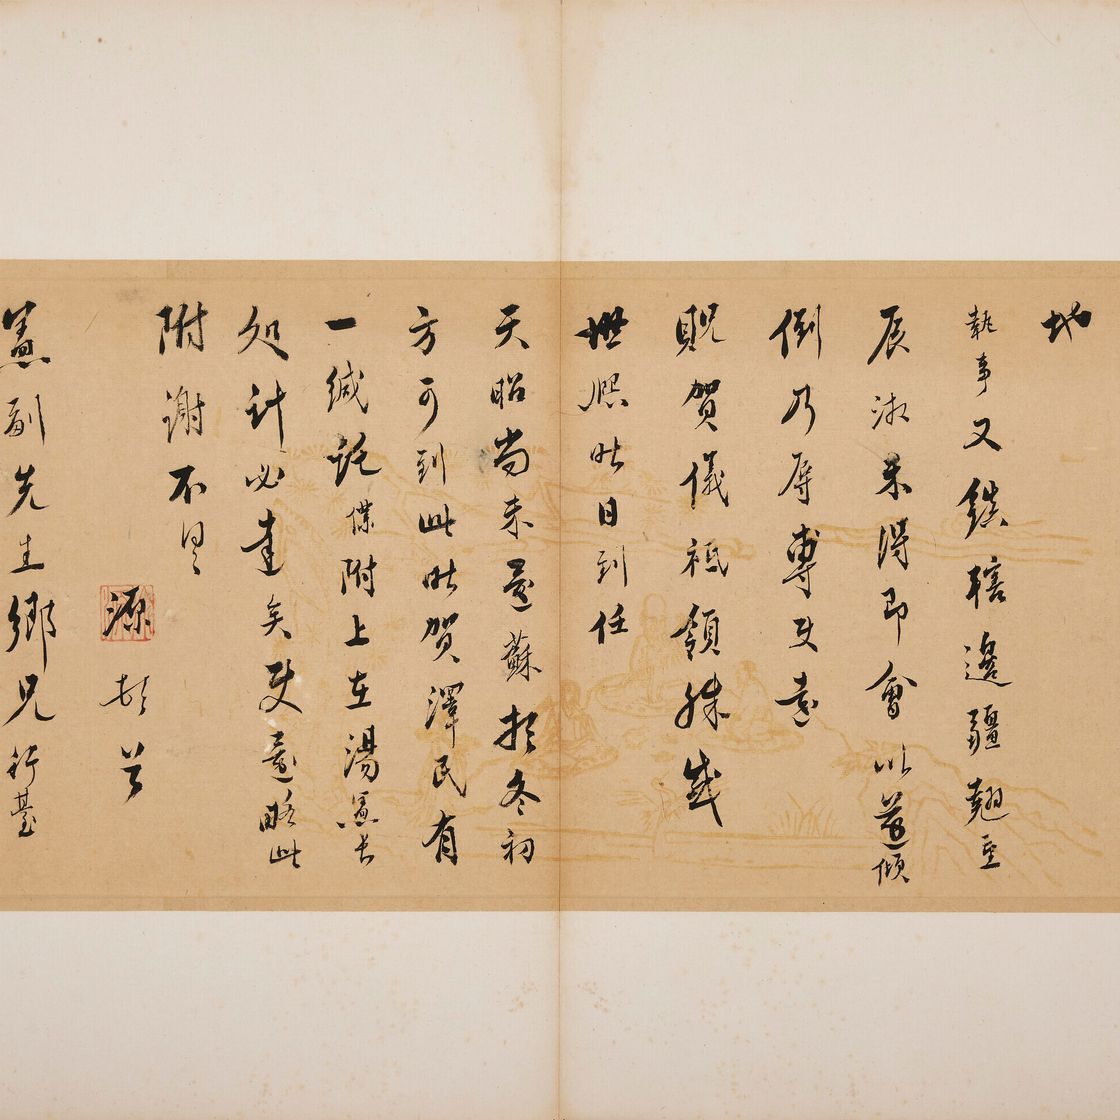 地
執事又鉄轄邊疆翹望
辰淑未得即會以道傾
倒乃辱專使遠
貺賀儀祗領殊感
世熙昨日到任
天昭尚未還蘇於冬初
方可到此昨賀澤民有
一緘託僕附上在湯憲長
処計必達矣使還略此
附謝不具
源頓首
憲副先生鄉兄行臺